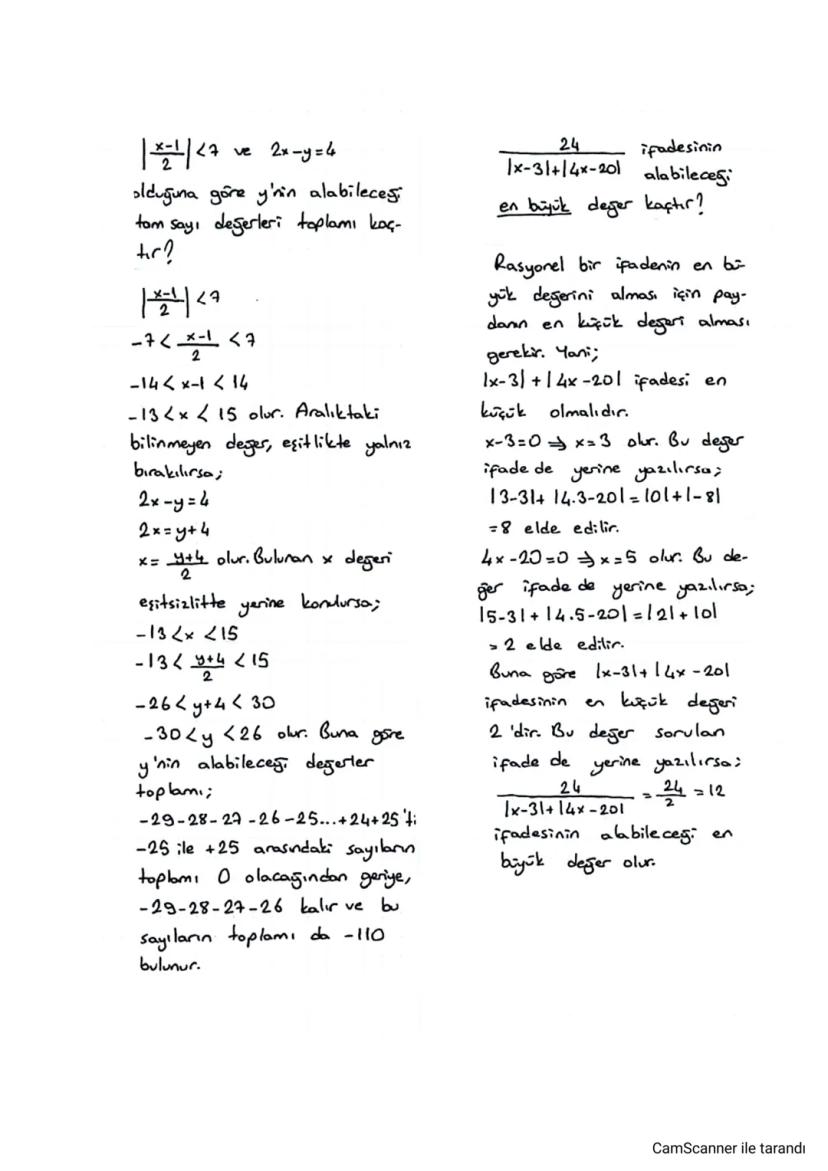 |x-1/2| < 7 ve 2x-y=4
olduğuna göre y'nin alabileceği
tam sayı değerleri toplamı kaç-
tır?
|x-1/2| < 7
-7 < x-1/2 < 7
-14 < x-1 < 14
-13 < x < 15 olur. Aralıktaki
bilinmeyen değer, eşitlikte yalnız
bırakılırsa;
2x-y=4
2x=y+4
x= y+4/2 olur. Bulunan x değeri
eşitsizlikte yerine konulursa;
-13 < x < 15
-13 < y+4/2 < 15
-26 < y+4 < 30
-30 < y < 26 olur. Buna göre
y'nin alabileceği değerler
toplamı;
-29-28-27-26-25...+24+25'ti
-25 ile +25 arasındaki sayıların
toplamı 0 olacağından geriye,
-29-28-27-26 kalır ve bu
sayıların toplamı da -110
bulunur.
24/|x-3|+|4x-20| ifadesinin
alabileceği
en büyük değer kaçtır?
Rasyonel bir ifadenin en bü-
yük değerini alması için pay-
danın en küçük değeri alması
gerekir. Yani;
|x-3|+|4x-20| ifadesi en
küçük olmalıdır.
x-3=0 ⇒ x=3 olur. Bu değer
ifade de yerine yazılırsa;
|3-3|+|4.3-20|=|0|+|-8|
=8 elde edilir.
4x-20=0 ⇒ x=5 olur. Bu de-
ğer ifade de yerine yazılırsa;
|5-3|+|4.5-20|=|2|+|0|
=2 elde edilir.
Buna göre |x-3|+|4x-20|
ifadesinin en küçük değeri
2'dir. Bu değer sorulan
ifade de yerine yazılırsa;
24/|x-3|+|4x-20| = 24/2 = 12
ifadesinin alabileceği en
büyük değer olur.
CamScanner ile tarandı